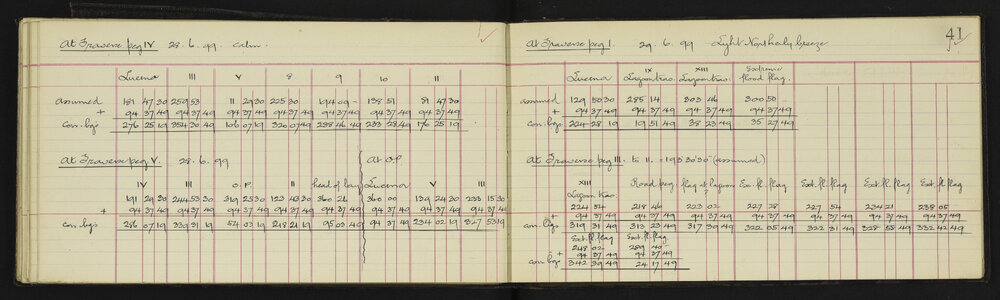 At Traverse peg IV 28.6.99 calm.
Lucerna III V 8 9 10 11
assumed 181 47 30 259 53 11 29 30 225 30 194 09 - 138 51 81 47 30
+ 94 37 49 94 37 49 94 37 49 94 37 49 94 37 49 94 37 49 94 37 49
con. bgs 276 25 19 354 30 49 106 07 19 320 07 49 288 46 49 233 28 49 176 25 19
At Traverse peg V. 28.6.99 At O.P.
IV III O.P. II head of bay Lucerna V III
191 29 30 244 53 30 319 25 30 123 43 30 360 24 360 00 139 24 30 233 15 30
+ 94 37 49 94 37 49 94 37 49 94 37 49 94 37 49 94 37 49 94 37 49 94 37 49
con. bgs 286 07 19 339 31 19 54 03 19 218 21 19 95 02 49 94 37 49 234 02 19 327 53 19
41
At Traverse peg I. 29.6.99 Light Northerly breeze
Lucerna IX XIII Extreme
Lagoon trav. Lagoon trav. flood flag.
assumed 129 50 30 285 14 303 46 300 50
+ 94 37 49 94 37 49 94 37 49 94 37 49
con. bgs 224 28 19 19 51 49 38 23 49 35 27 49
At Traverse peg III. to II. = 195°30'30" (assumed)
XIII Road peg flag at lagoon Ex. fl. flag Ext. fl. flag Ext. fl. flag Ext. fl. flag
Lagoon trav
224 54 218 46 223 02 227 28 227 54 234 21 238 05
+ 94 37 49 94 37 49 94 37 49 94 37 49 94 37 49 94 37 49 94 37 49
con. bgs 319 31 49 313 23 49 317 39 49 322 05 49 322 31 49 328 58 49 332 42 49
Ext. fl. flag Ext. fl. flag
248 02 289 40
+ 94 37 49 94 37 49
con bgs 342 39 49 24 17 49